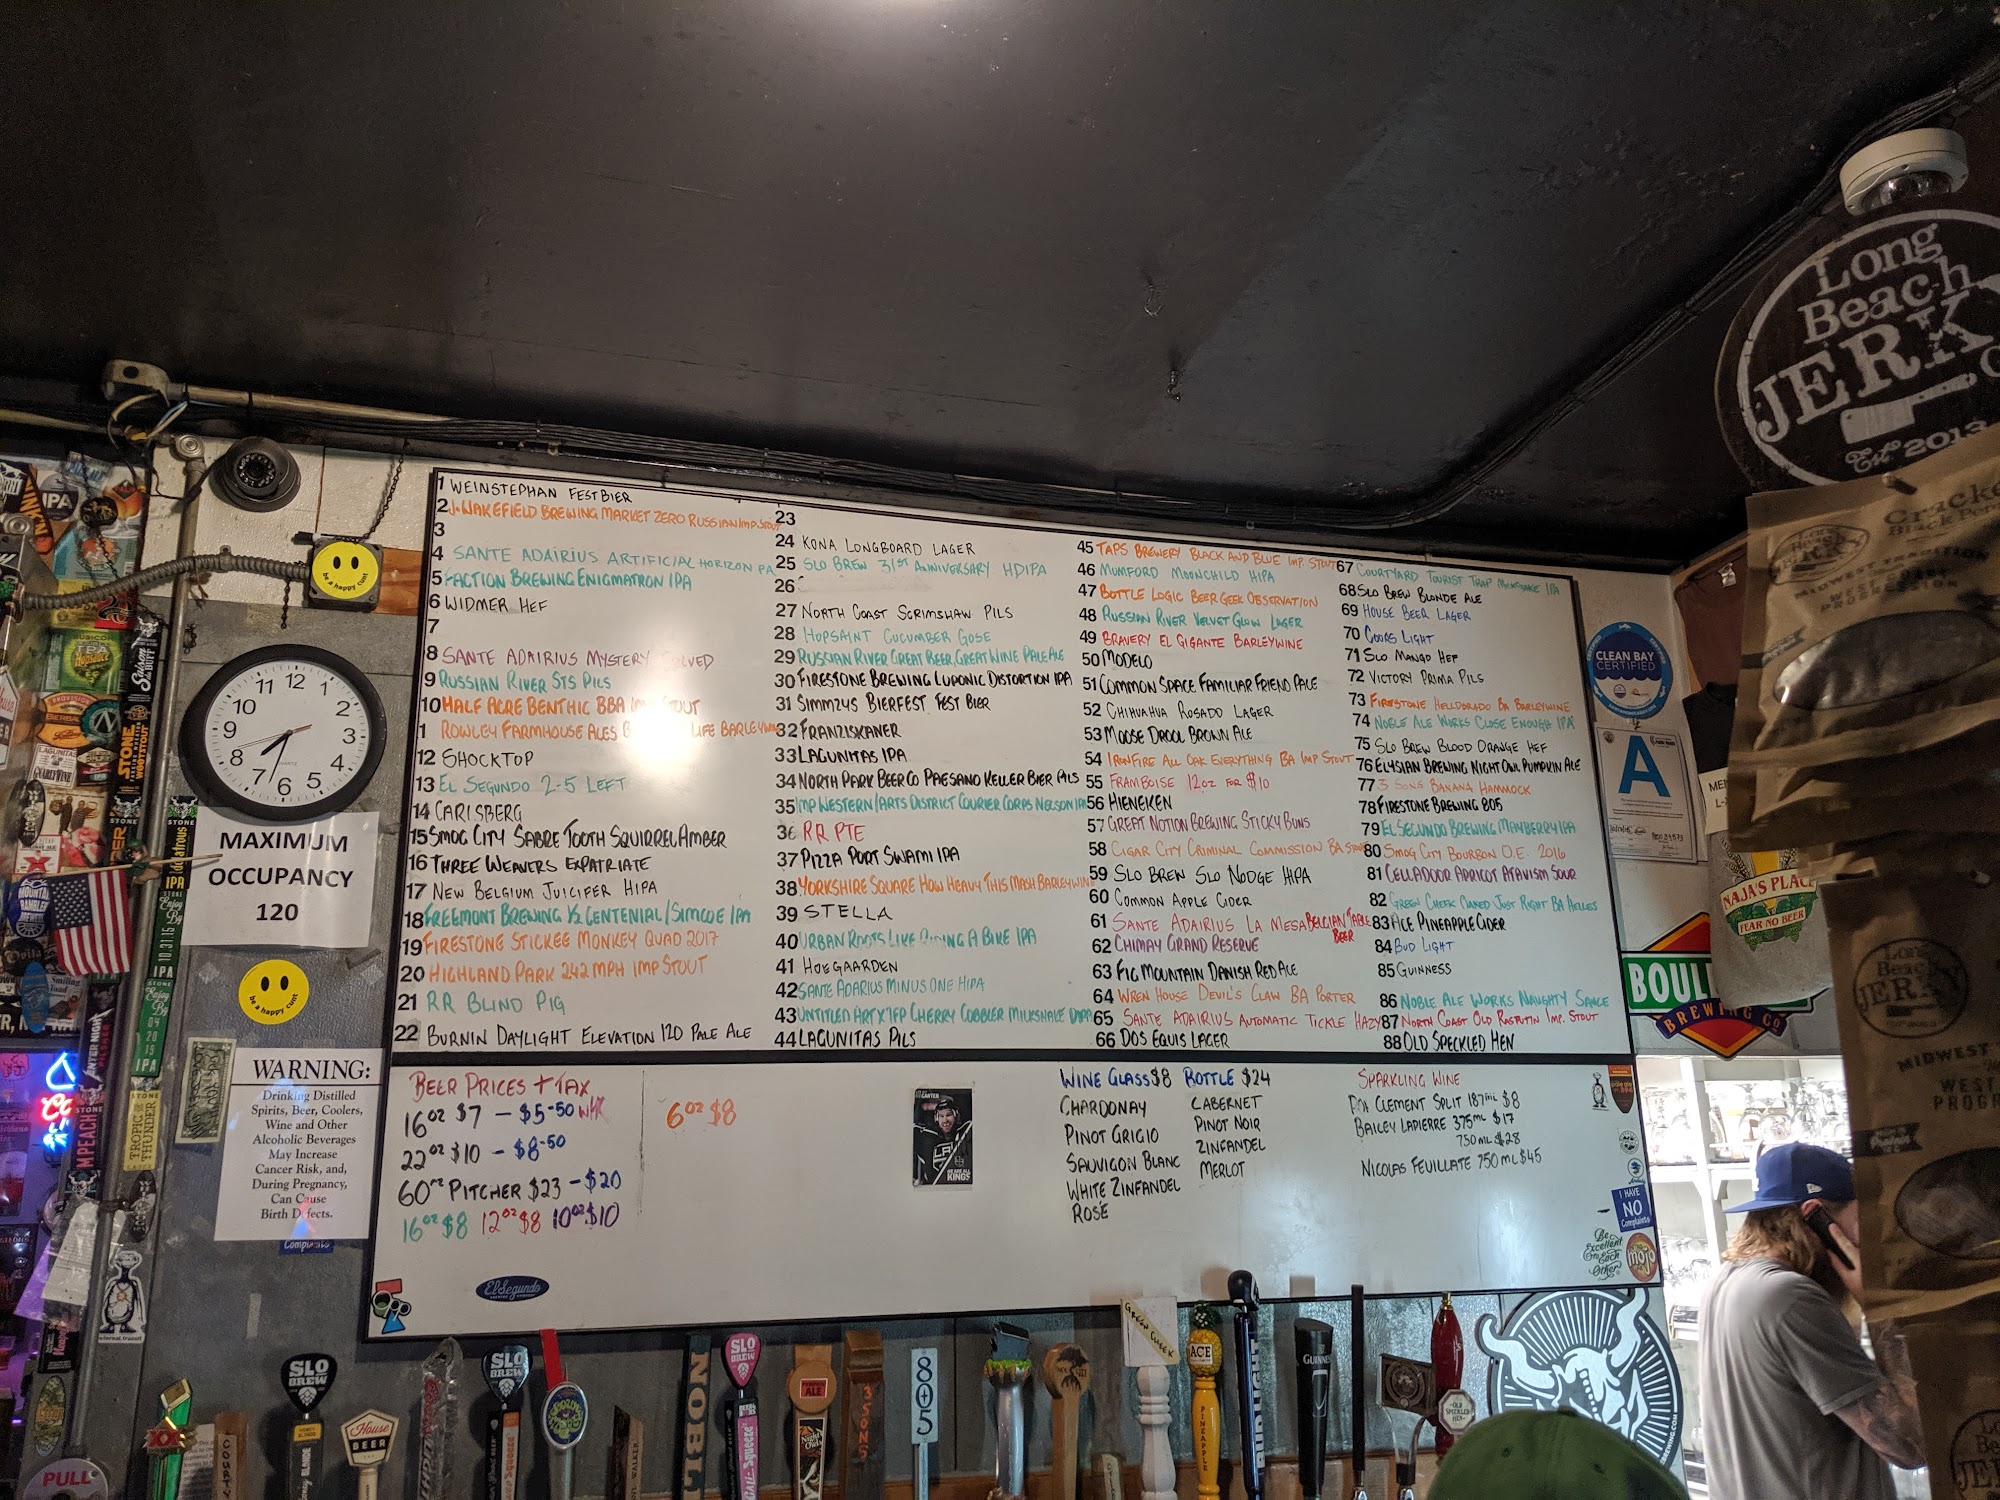 1 WEINSTEPHAN FESTBIER
2 J. WAKEFIELD BREWING MARKET ZERO RUSSIAN IMP. STOUT
3
4 SANTE ADAIRIUS ARTIFICIAL HORIZON PA
5 FACTION BREWING ENIGMATRON IPA
6 WIDMER HEF
7
8 SANTE ADAIRIUS MYSTERY SOLVED
9 RUSSIAN RIVER STS PILS
10 HALF ACRE BENTHIC BBA IMP STOUT
1 ROWLEY FARMHOUSE ALES LIFE BARLEYWINE
12 SHOCKTOP
13 EL SEGUNDO 2-5 LEFT
14 CARLSBERG
15 SMOG CITY SABRE TOOTH SQUIRREL AMBER
16 THREE WEAVERS EXPATRIATE
17 NEW BELGIUM JUICIFER HIPA
18 FREEMONT BREWING 1/2 CENTENIAL/SIMCOE IPA
19 FIRESTONE STICKEE MONKEY QUAD 2017
20 HIGHLAND PARK 242 MPH IMP STOUT
21 RR BLIND PIG
22 BURNIN DAYLIGHT ELEVATION 120 PALE ALE
23
24 KONA LONGBOARD LAGER
25 SLO BREW 31ST ANNIVERSARY HDIPA
26
27 NORTH COAST SCRIMSHAW PILS
28 HOPSAINT CUCUMBER GOSE
29 RUSSIAN RIVER GREAT BEER, GREAT WINE PALE ALE
30 FIRESTONE BREWING LUPONIC DISTORTION IPA
31 SIMMZYS BIERFEST FEST BIER
32 FRANZISKANER
33 LAGUNITAS IPA
34 NORTH PARK BEER CO PAESANO KELLER BIER PILS
35 IMP WESTERN/ARTS DISTRICT COURIER CORPS NELSON IPA
36 RR PTE
37 PIZZA PORT SWAMI IPA
38 YORKSHIRE SQUARE HOW HEAVY THIS MASH BARLEYWINE
39 STELLA
40 URBAN ROOTS LIKE RIDING A BIKE IPA
41 HOEGAARDEN
42 SANTE ADARIUS MINUS ONE HIPA
43 UNTITLED ART X TFP CHERRY COBBLER MILKSHAKE DIPA
44 LAGUNITAS PILS
45 TAPS BREWERY BLACK AND BLUE IMP. STOUT
46 MUMFORD MOONCHILD HIPA
47 BOTTLE LOGIC BEER GEEK OBSERVATION
48 RUSSIAN RIVER VELVET GLOW LAGER
49 BRAVERY EL GIGANTE BARLEYWINE
50 MODELO
51 COMMON SPACE FAMILIAR FRIEND PALE
52 CHIHUAHUA ROSADO LAGER
53 MOOSE DROOL BROWN ALE
54 IRONFIRE ALL OAK EVERYTHING BA IMP STOUT
55 FRAMBOISE 12oz FOR $10
56 HIENEKEN
57 GREAT NOTION BREWING STICKY BUNS
58 CIGAR CITY CRIMINAL COMMISSION BA STOUT
59 SLO BREW SLO NODGE HIPA
60 COMMON APPLE CIDER
61 SANTE ADAIRIUS LA MESA BELGIAN TABLE BEER
62 CHIMAY GRAND RESERVE
63 FIG MOUNTAIN DANISH RED ALE
64 WREN HOUSE DEVIL'S CLAW BA PORTER
65 SANTE ADAIRIUS AUTOMATIC TICKLE HAZY
66 DOS EQUIS LAGER
67 COURTYARD TOURIST TRAP MILKSHAKE IPA
68 SLO BREW BLONDE ALE
69 HOUSE BEER LAGER
70 COORS LIGHT
71 SLO MANGO HEF
72 VICTORY PRIMA PILS
73 FIRESTONE HELLDORADO BA BARLEYWINE
74 NOBLE ALE WORKS CLOSE ENOUGH IPA
75 SLO BREW BLOOD ORANGE HEF
76 ELYSIAN BREWING NIGHT OWL PUMPKIN ALE
77 3 SONS BANANA HAMMOCK
78 FIRESTONE BREWING 805
79 EL SEGUNDO BREWING MAYBERRY IPA
80 SMOG CITY BOURBON O.E. 2016
81 CELLADOR APRICOT ATAVISM SOUR
82 GREEN CHEEK JUST RIGHT BA HELLES
83 ACE PINEAPPLE CIDER
84 BUD LIGHT
85 GUINNESS
86 NOBLE ALE WORKS NAUGHTY SAUCE
87 NORTH COAST OLD RASPUTIN IMP. STOUT
88 OLD SPECKLED HEN
BEER PRICES + TAX
16oz $7 - $5.50 WHR
22oz $10 - $8.50
60oz PITCHER $23 - $20
16oz $8 12oz $8 10oz $10
6oz $8
WINE GLASS $8 BOTTLE $24
CHARDONAY
PINOT GRIGIO
SAUVIGON BLANC
WHITE ZINFANDEL
ROSE
CABERNET
PINOT NOIR
ZINFANDEL
MERLOT
SPARKLING WINE
CLEMENT SPLIT 187ML $8
BAILEY LAPIERRE 375ML $17
750ML $28
NICOLAS FEUILLATE 750ML $45
CARTER
LA
WE ARE ALL
KINGS
El Segundo
be a happy cunt
11 12 1
10 2
9 3
8 4
7 6 5
MAXIMUM
OCCUPANCY
120
be a happy cunt
WARNING:
Drinking Distilled
Spirits, Beer, Coolers,
Wine and Other
Alcoholic Beverages
May Increase
Cancer Risk, and,
During Pregnancy,
Can Cause
Birth Defects.
Complaints
Long
Beach
JERKY
Est 2013
CLEAN BAY
CERTIFIED
A
NAJA'S PLACE
FEAR NO BEER
BOUL
BREWING CO
I HAVE
NO
Complaints
Be
Excellent
to Each
Other
mojo
SLO
BREW
House
BEER
SLO
BREW
NOBL
SLO
BREW
PUMPKIN
ALE
Night Owl
3 SONS
805
GREEN CHEEK
ACE
PINEAPPLE
BUD LIGHT
GUINNESS
OLD
SPECKLED
HEN
PULL
XX
IPA
STONE
Enjoy
By
10.31.15
IPA
Enjoy
By
04
20
15
IPA
TROPIC OF
THUNDER